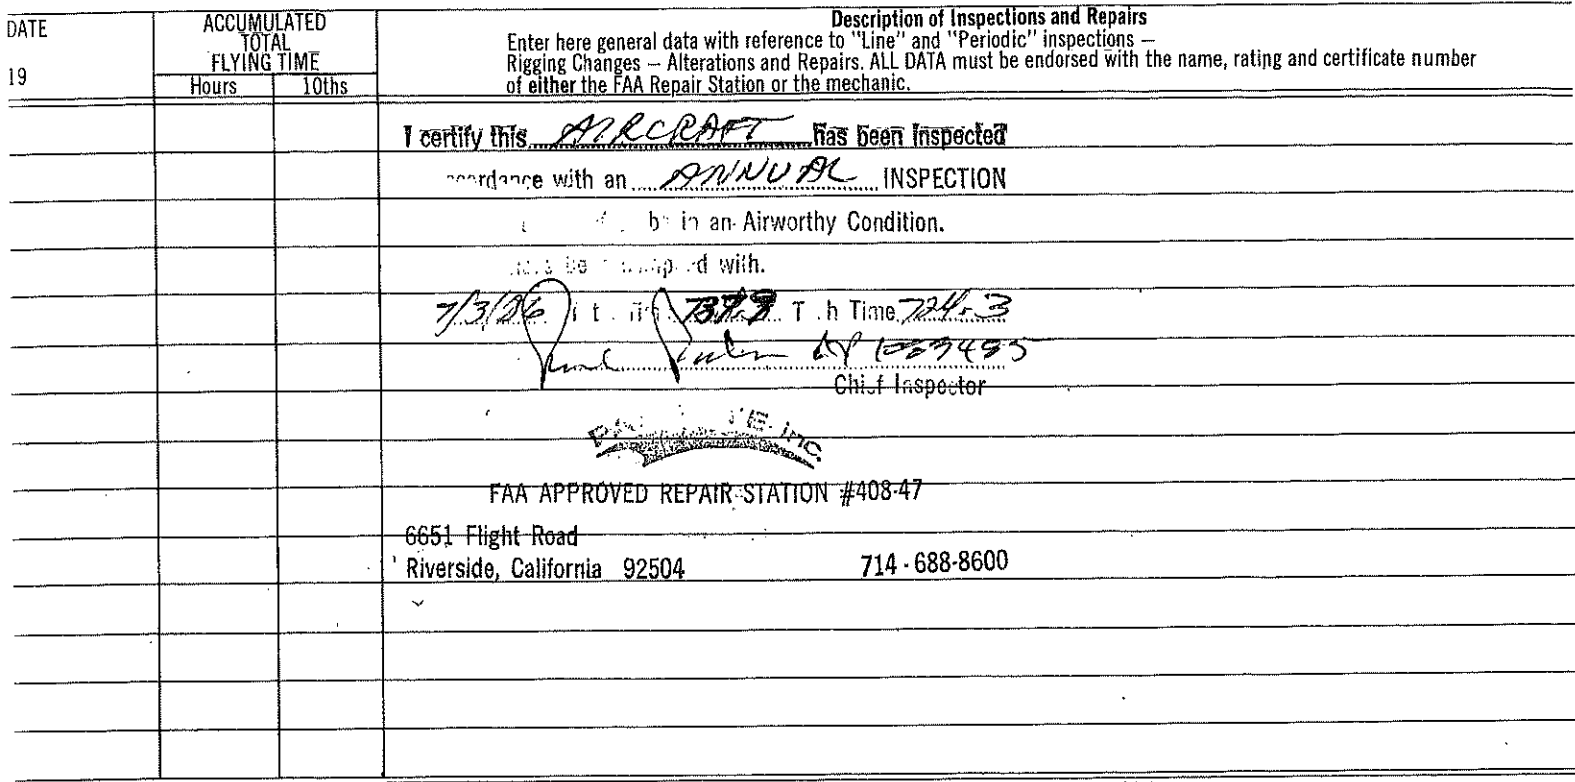 DATE
19
ACCUMULATED
TOTAL
FLYING TIME
Hours 10ths
Description of Inspections and Repairs
Enter here general data with reference to "Line" and "Periodic" inspections —
Rigging Changes — Alterations and Repairs. ALL DATA must be endorsed with the name, rating and certificate number
of either the FAA Repair Station or the mechanic.
I certify this AIRCRAFT has been Inspected
with an ANNUAL INSPECTION
in an Airworthy Condition.
with.
Time 724.3
Chief Inspector
Inc.
FAA APPROVED REPAIR STATION #408-47
6651 Flight Road
Riverside, California 92504 714-688-8600